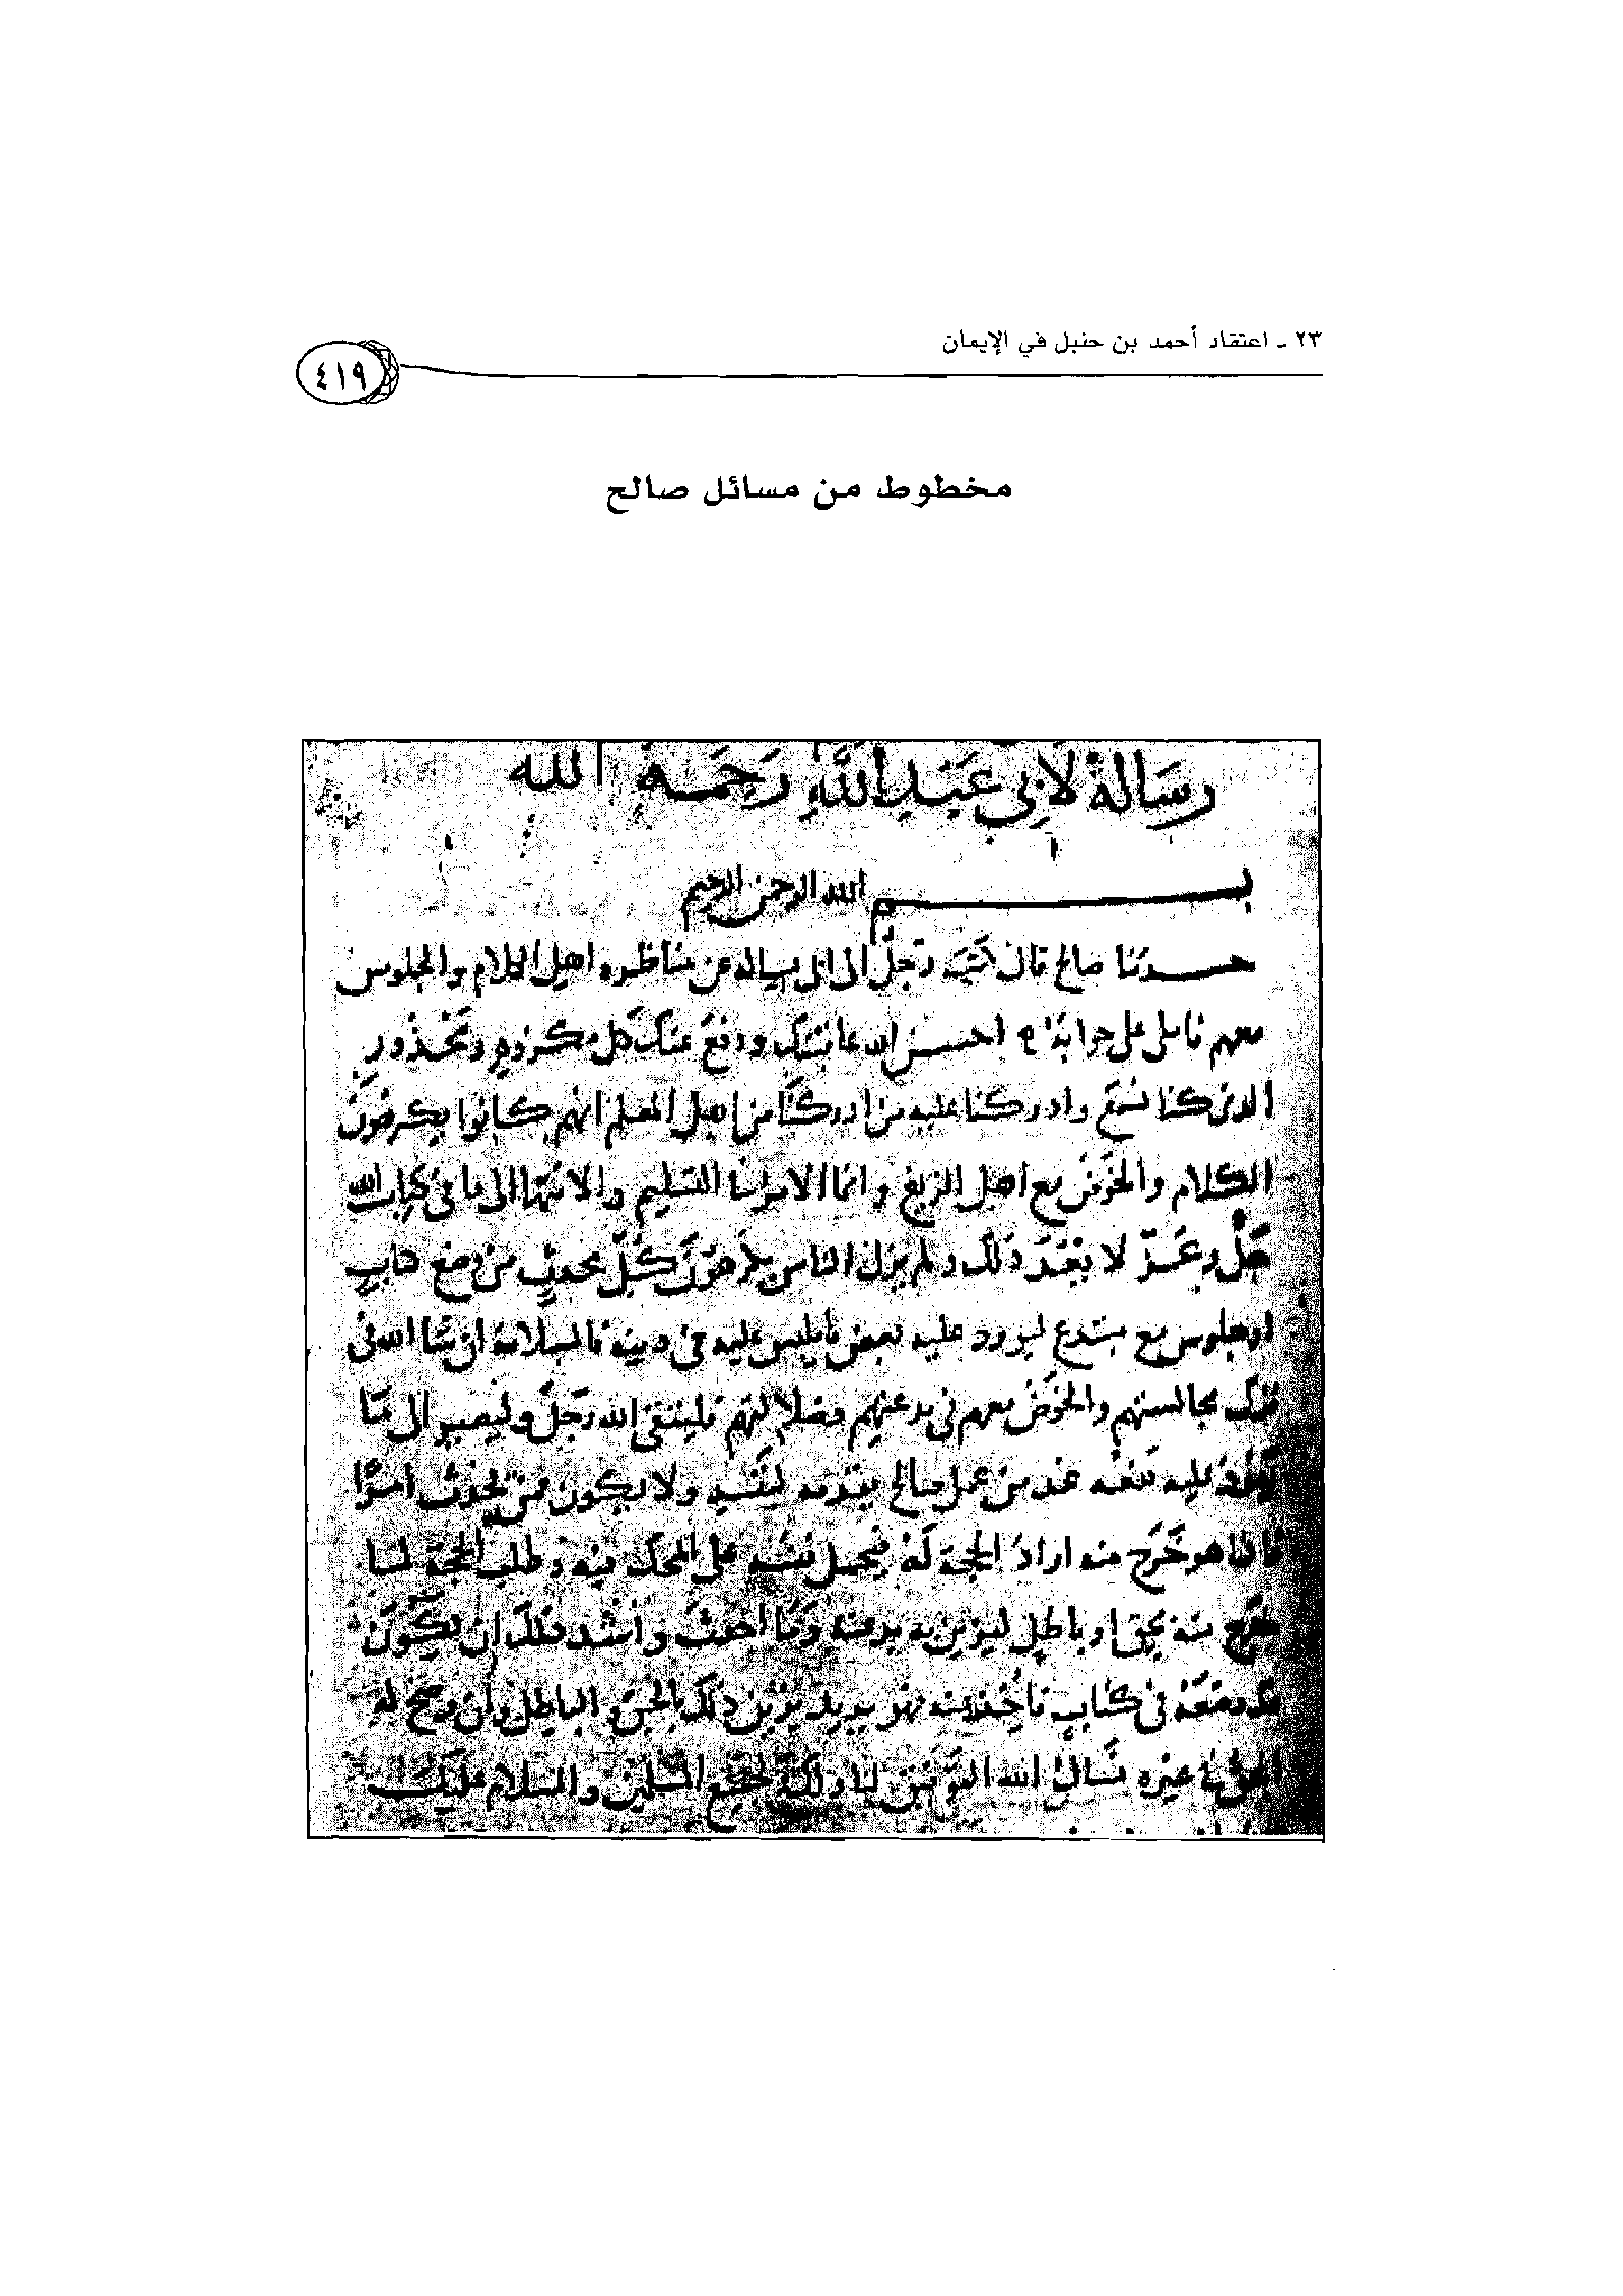 ٢٣ - اعتقاد أحمد بن حنبل في الإيمان
٤١٩
مخطوط من مسائل صالح
رسالة لابي عبد الله رحمه الله
بسم الله الرحمن الرحيم
حدثنا صالح قال كتب رجل الى ابي يساله عن مناظره اهل الكلام والجلوس
معهم فاملى علي جوابه احسن الله عاقبتك ودفع عنك كل مكروه ومحذور
الذي كنا نسمع وادركنا عليه من ادركنا من اهل العلم انهم كانوا يكرهون
الكلام والخوض مع اهل الزيغ وانما الامر في التسليم والانتها الى ما في كتاب الله
جل وعز لا يعد ذلك ولم يزل الناس يكرهون كل محدث من وضع كتاب
او جلوس مع مبتدع ليورد عليه بعض ما يلبس عليه في دينه فالسلامة ان شا الله في
ترك مجالستهم والخوض معهم في بدعتهم وضلالتهم فليتق الله رجل وليصير الى ما
يعود عليه نفعه غدا من عمل صالح يقدمه لنفسه ولا يكون ممن يحدث امرا
فاذا هو خرج منه اراد الحجة له فيحمل نفسه على المحك فيه وطلب الحجة لما
خرج منه بحق او باطل ليزين به بدعته وما احدث واشد ذلك ان يكون
قد وضعه في كتاب فاخذ عنه فهو يريد يزين ذلك بالحق والباطل وان وضح له
الحق في غيره نسال الله التوفيق لنا ولك ولجميع المسلمين والسلام عليك